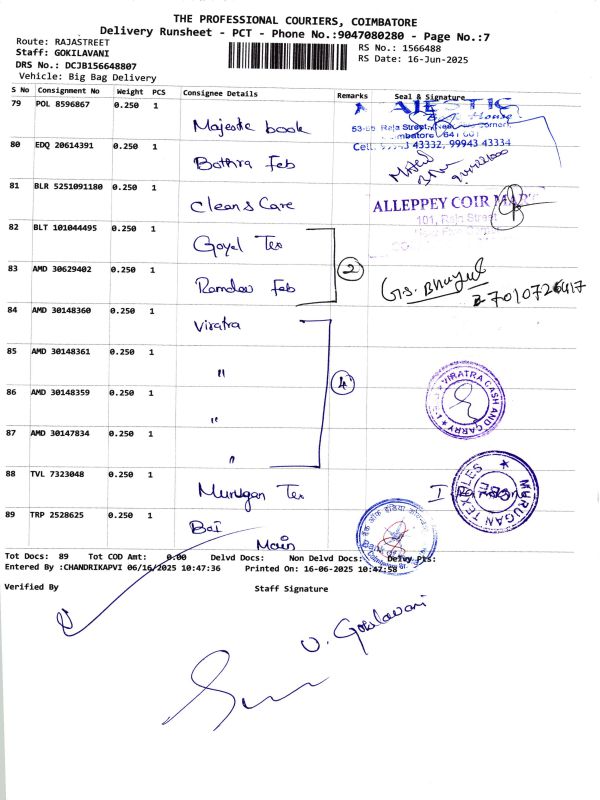 THE PROFESSIONAL COURIERS, COIMBATORE
Delivery Runsheet - PCT - Phone No.:9047080280 - Page No.:7
Route: RAJASTREET
Staff: GOKILAVANI
RS No.: 1566488
DRS No.: DCJB156648807
RS Date: 16-Jun-2025
Vehicle: Big Bag Delivery
S No Consignment No Weight PCS Consignee Details Remarks Seal & Signature
79 POL 8596867 0.250 1 Majestic book
80 EDQ 20614391 0.250 1 Bothra Feb
81 BLR 5251091180 0.250 1 Clean & Care
ALLEPPEY COIR MART
101, Raja Street
82 BLT 101044495 0.250 1 Goyal Tex
83 AMD 30629402 0.250 1 Ramdev Feb
2
G.S.
7010726417
84 AMD 30148360 0.250 1 Viratra
85 AMD 30148361 0.250 1 "
86 AMD 30148359 0.250 1 "
4
VIRATRA CASH AND CARRY
87 AMD 30147834 0.250 1 "
88 TVL 7323048 0.250 1 Murugan Tex
MURUGAN TEXTILES
89 TRP 2528625 0.250 1 BOI
Main
Tot Docs: 89 Tot COD Amt: 0.00 Delvd Docs: Non Delvd Docs: Delvy Pts:
Entered By :CHANDRIKAPVI 06/16/2025 10:47:36 Printed On: 16-06-2025 10:47:58
Verified By Staff Signature
V. Gokilavani